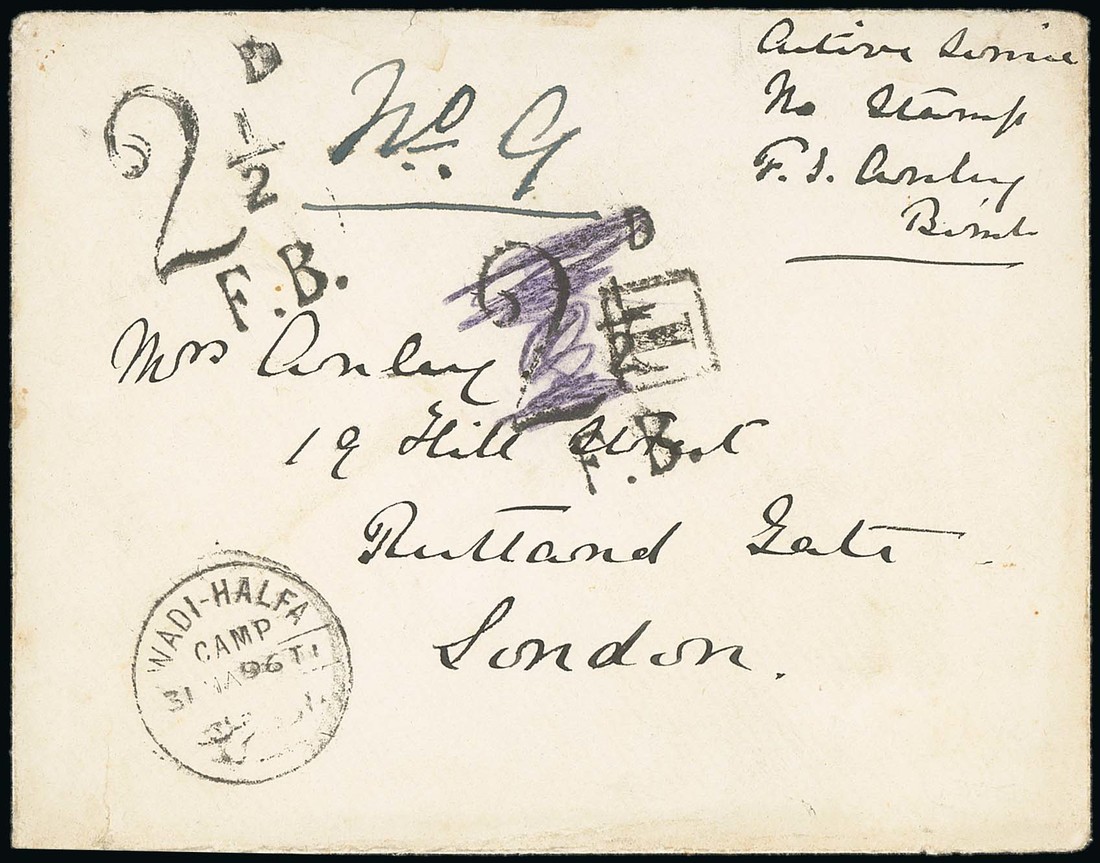 Active Service
No Stamp
F. S. Conley
2 D 1/2
F.B.
No. 9
2 D 1/2
T
F.B.
Mrs Conley
19 Hill Street
Rutland Gate
London.
WADI-HALFA
CAMP
31 MA 96 T 1